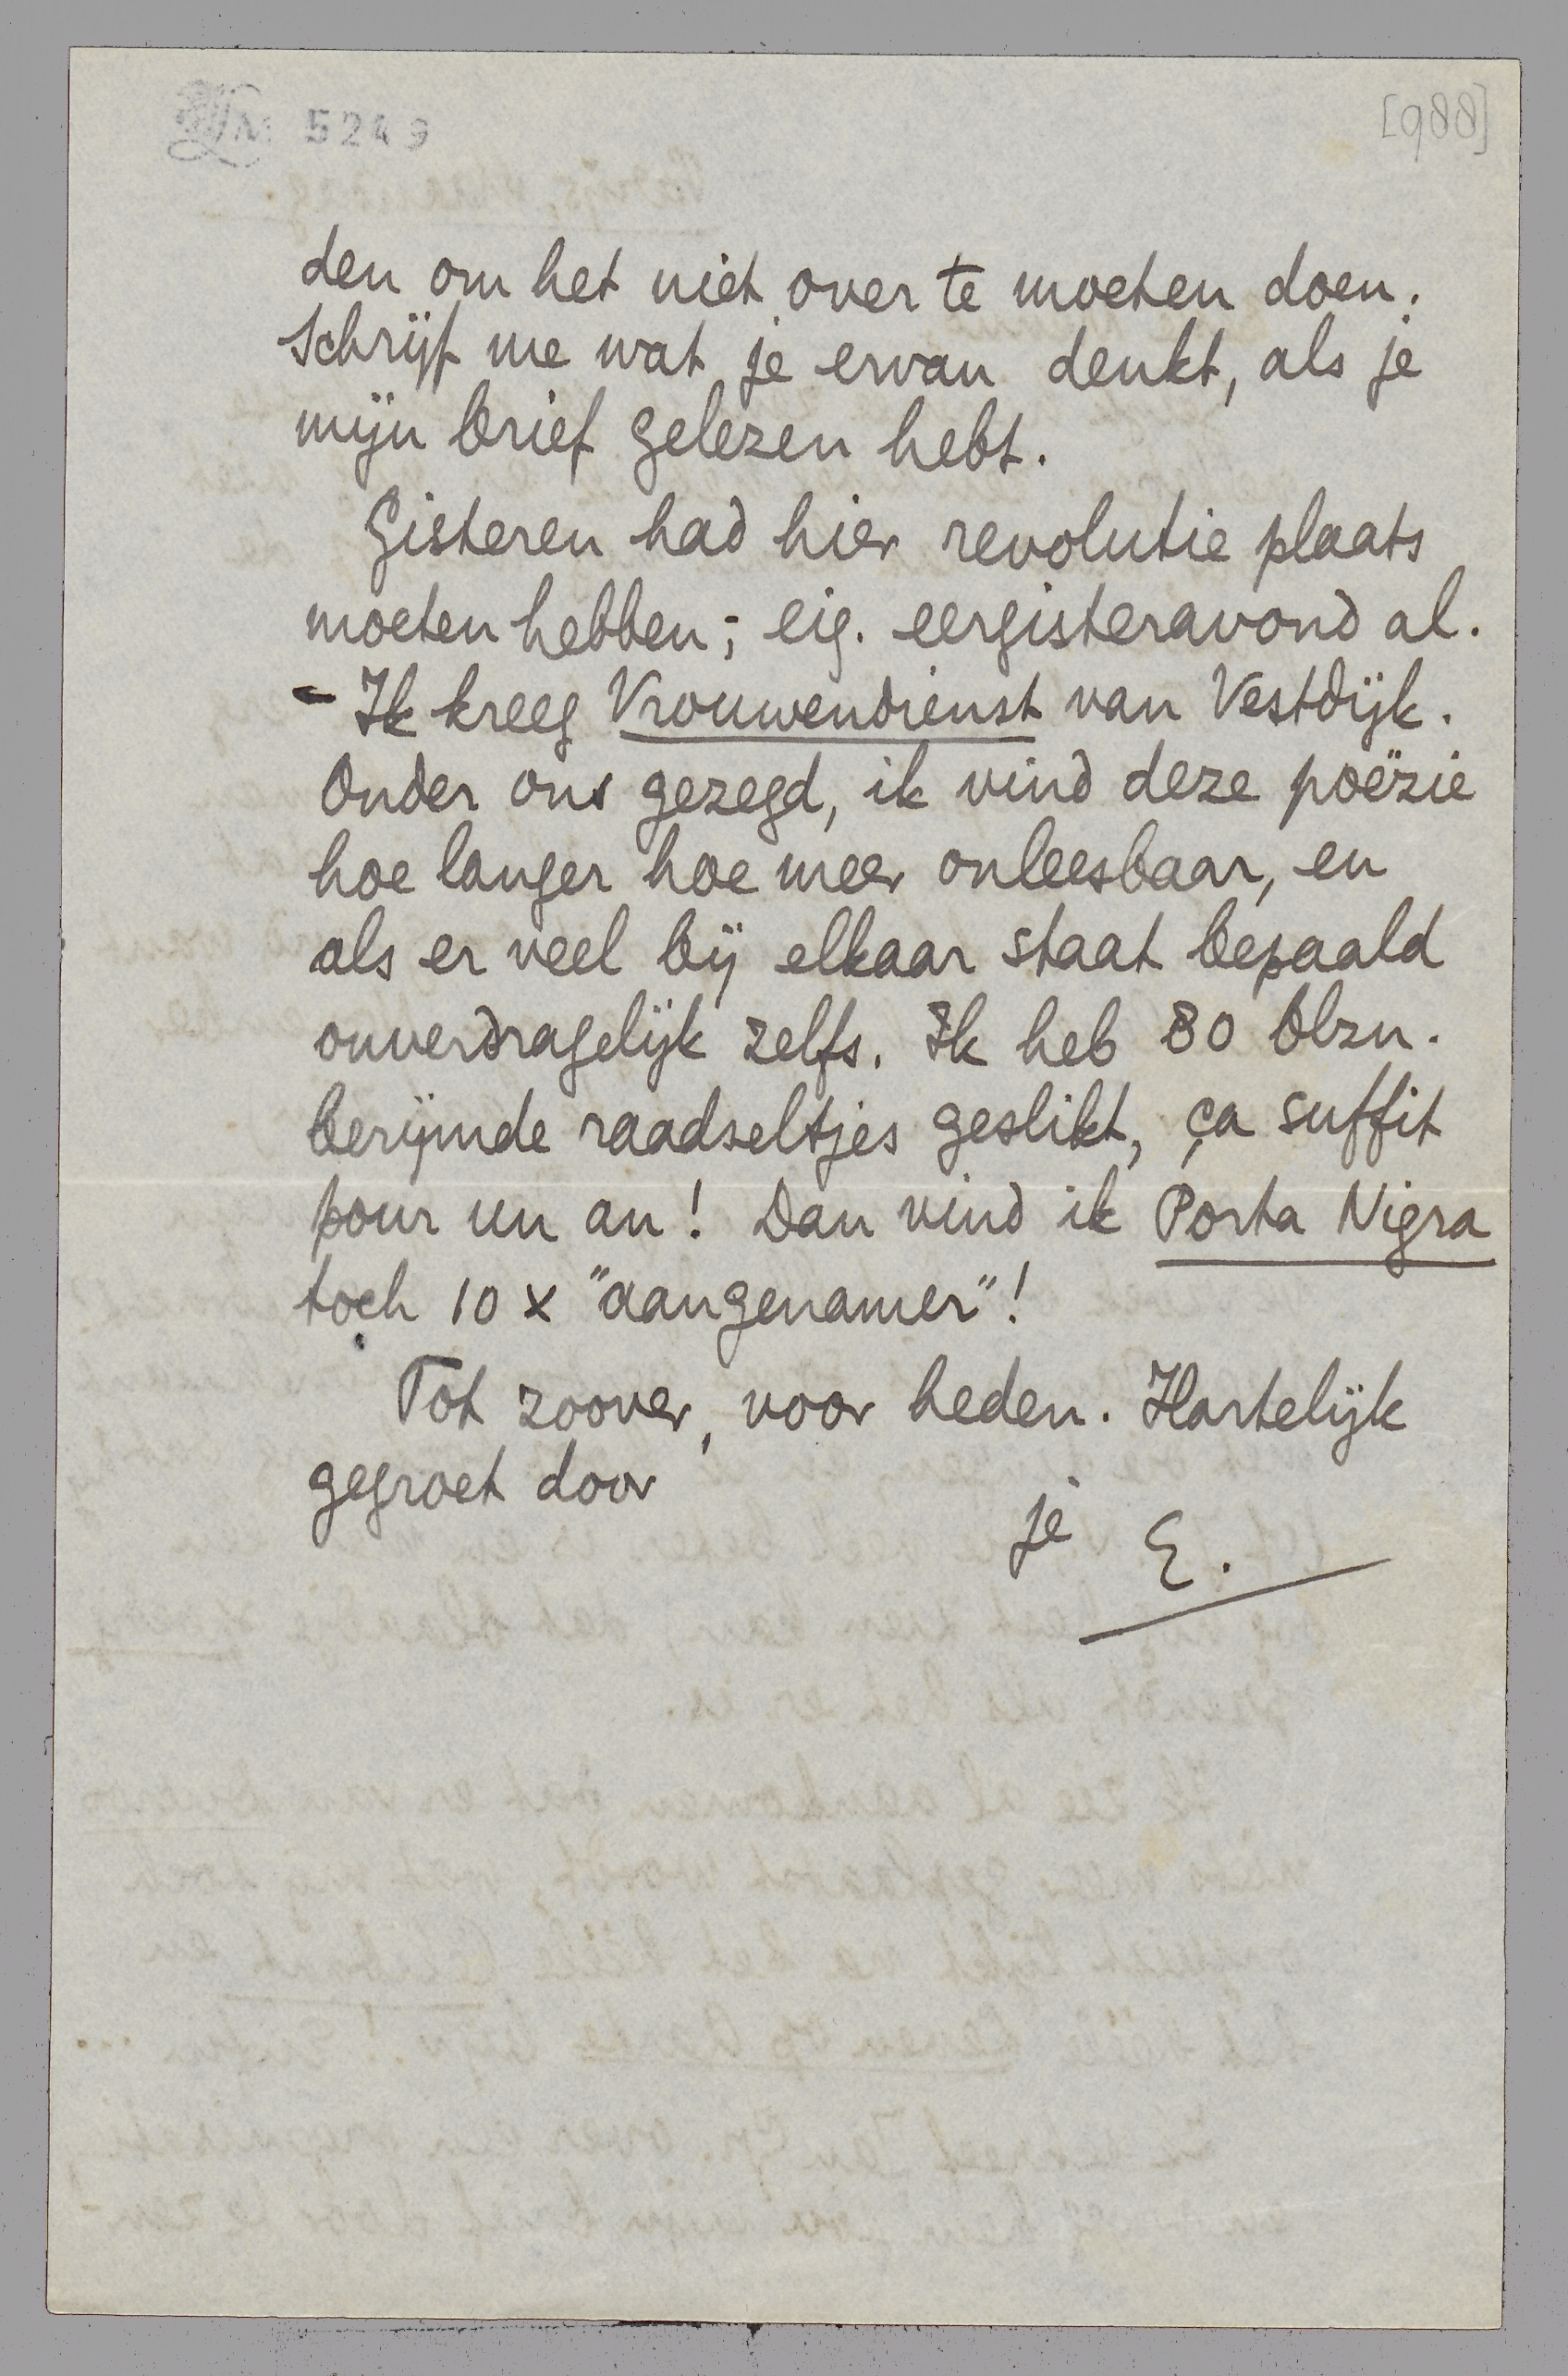 5249
[988]
den om het niet over te moeten doen.
Schrijf me wat je ervan denkt, als je
mijn brief gelezen hebt.
Gisteren had hier revolutie plaats
moeten hebben; eig. eergisteravond al.
- Ik kreeg Vrouwendienst van Vestdijk.
Onder ons gezegd, ik vind deze poëzie
hoe langer hoe meer onleesbaar, en
als er veel bij elkaar staat bepaald
onverdragelijk zelfs. Ik heb 80 blzn.
berijmde raadseltjes geslikt, ça suffit
pour un an! Dan vind ik Porta Nigra
toch 10 x "aangenamer"!
Tot zoover, voor heden. Hartelijk
gegroet door
je E.